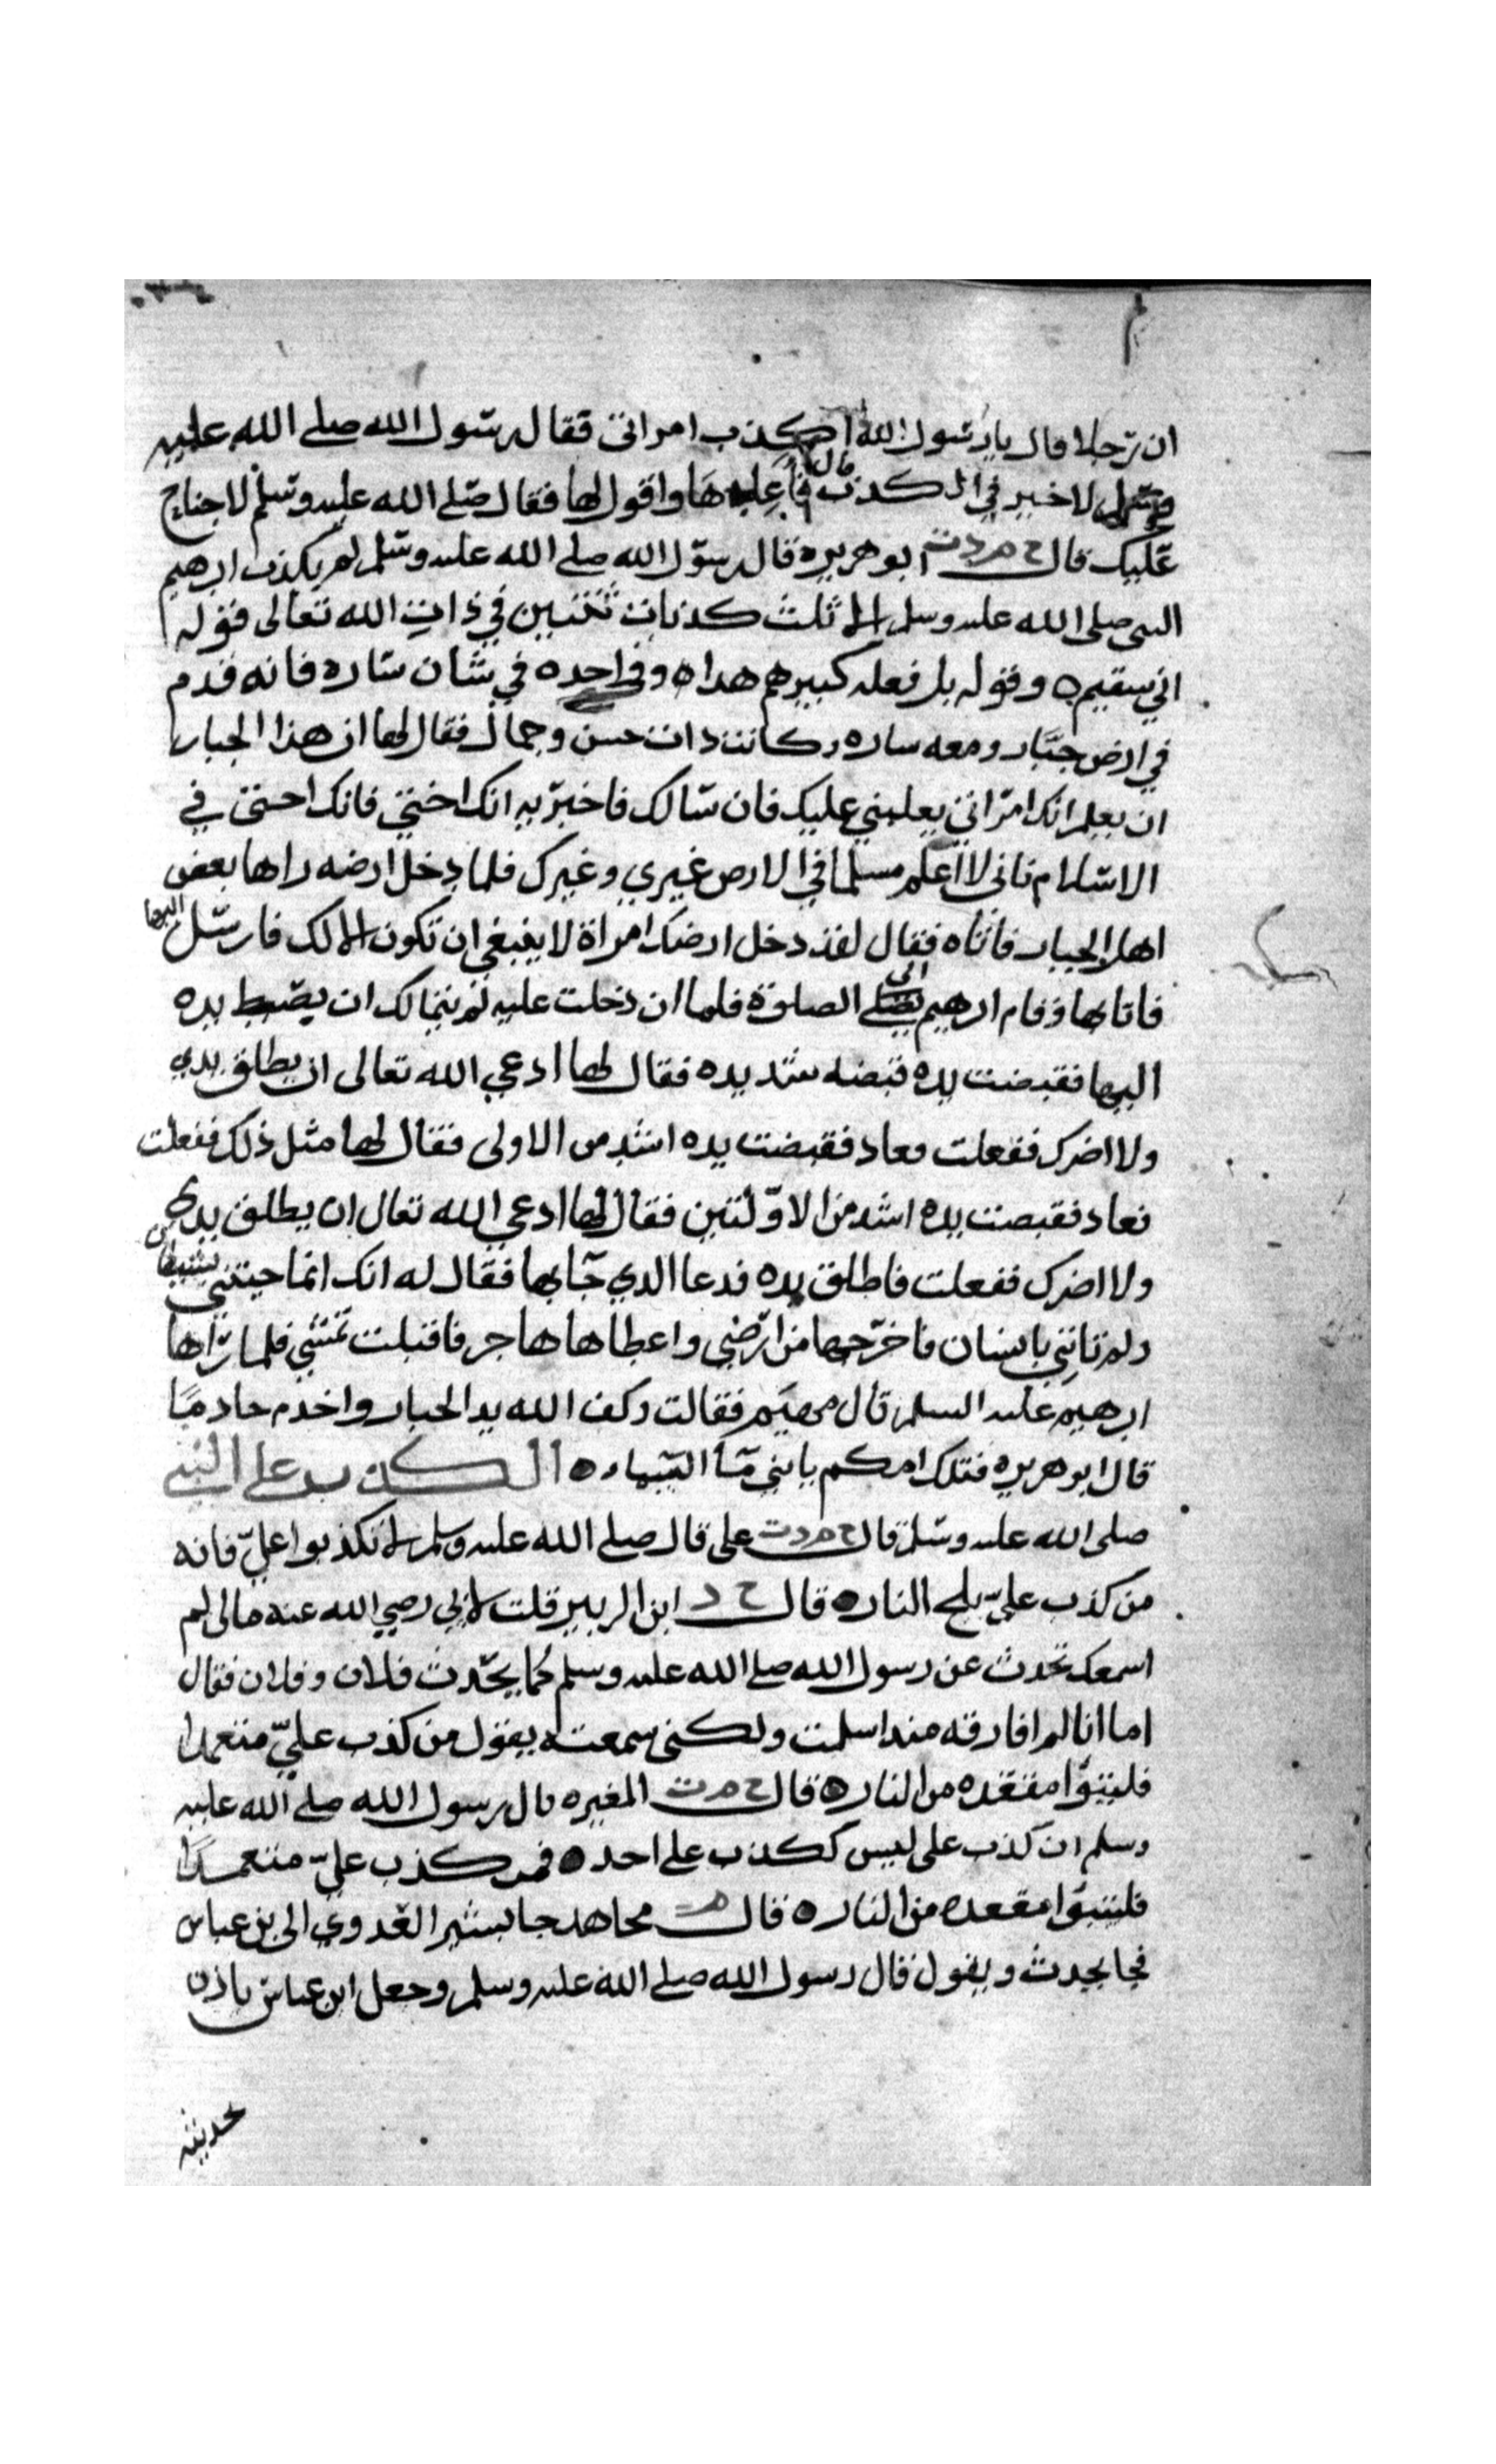 ان رجلا قال يا رسول الله اكذب امراتي فقال رسول الله صلى الله عليه
وسلم لا خير في الكذب قال فاعدها واقول لها فقال صلى الله عليه وسلم لا جناح
عليك قال خ م د ت ابو هريره قال رسول الله صلى الله عليه وسلم لم يكذب ابرهيم
النبى صلى الله عليه وسلم الا ثلث كذبات ثنتين في ذات الله تعالى قوله
اني سقيم ه وقوله بل فعله كبيرهم هذا ه وواحده في شان ساره فانه قدم
في ارض جبار ومعه ساره وكانت ذات حسن وجمال فقال لها ان هذا الجبار
ان يعلم انك امراتي يغلبني عليك فان سالك فاخبريه انك اختي فانك اختى في
الاسلام فانى لا اعلم مسلما في الارض غيري وغيرك فلما دخل ارضه راها بعض
اهل الجبار فاتاه فقال لقد دخل ارضك امراة لا ينبغي ان تكون الا لك فارسل اليها
فاتا بها وقام ابرهيم الى الصلوة فلما ان دخلت عليه لم يتمالك ان يبسط يده
اليها فقبضت يده قبضه شديده فقال لها ادعي الله تعالى ان يطلق يدي
ولا اضرك ففعلت فعاد فقبضت يده اشد من الاولى فقال لها مثل ذلك ففعلت
فعاد فقبضت يده اشد من الاولتين فقال لها ادعي الله تعالى ان يطلق يدي
ولا اضرك ففعلت فاطلق يده فدعا الذي جا بها فقال له انك انما جيتني بشيطان
ولم تاتني بانسان فاخرجها من ارضي واعطاها هاجر فاقبلت تمشي فلما راها
ابرهيم عليه السلم قال مهيم فقالت كف الله يد الجبار واخدم خادما
قال ابو هريره فتلك امكم يا بني ما السما ه الكذب على النبي
صلى الله عليه وسلم قال خ م د ت على قال صلى الله عليه وسلم لا تكذبوا علي فانه
من كذب علي يلج النار ه قال خ د ابن الزبير قلت لابي رضي الله عنه مالى لم
اسمعك تحدث عن رسول الله صلى الله عليه وسلم كما يحدث فلان وفلان فقال
اما انا لم افارقه منذ اسلمت ولكنى سمعته يقول من كذب علي متعمدا
فليتبوا مقعده من النار ه قال خ م ت المغيره قال رسول الله صلى الله عليه
وسلم ان كذب على ليس ككذب على احد ه فمن كذب علي متعمدا
فليتبوا مقعده من النار ه قال م مجاهد جا بشير العدوي الى بن عباس
فجا يحدث ويقول قال رسول الله صلى الله عليه وسلم وجعل ابن عباس ياذن
لحديثه